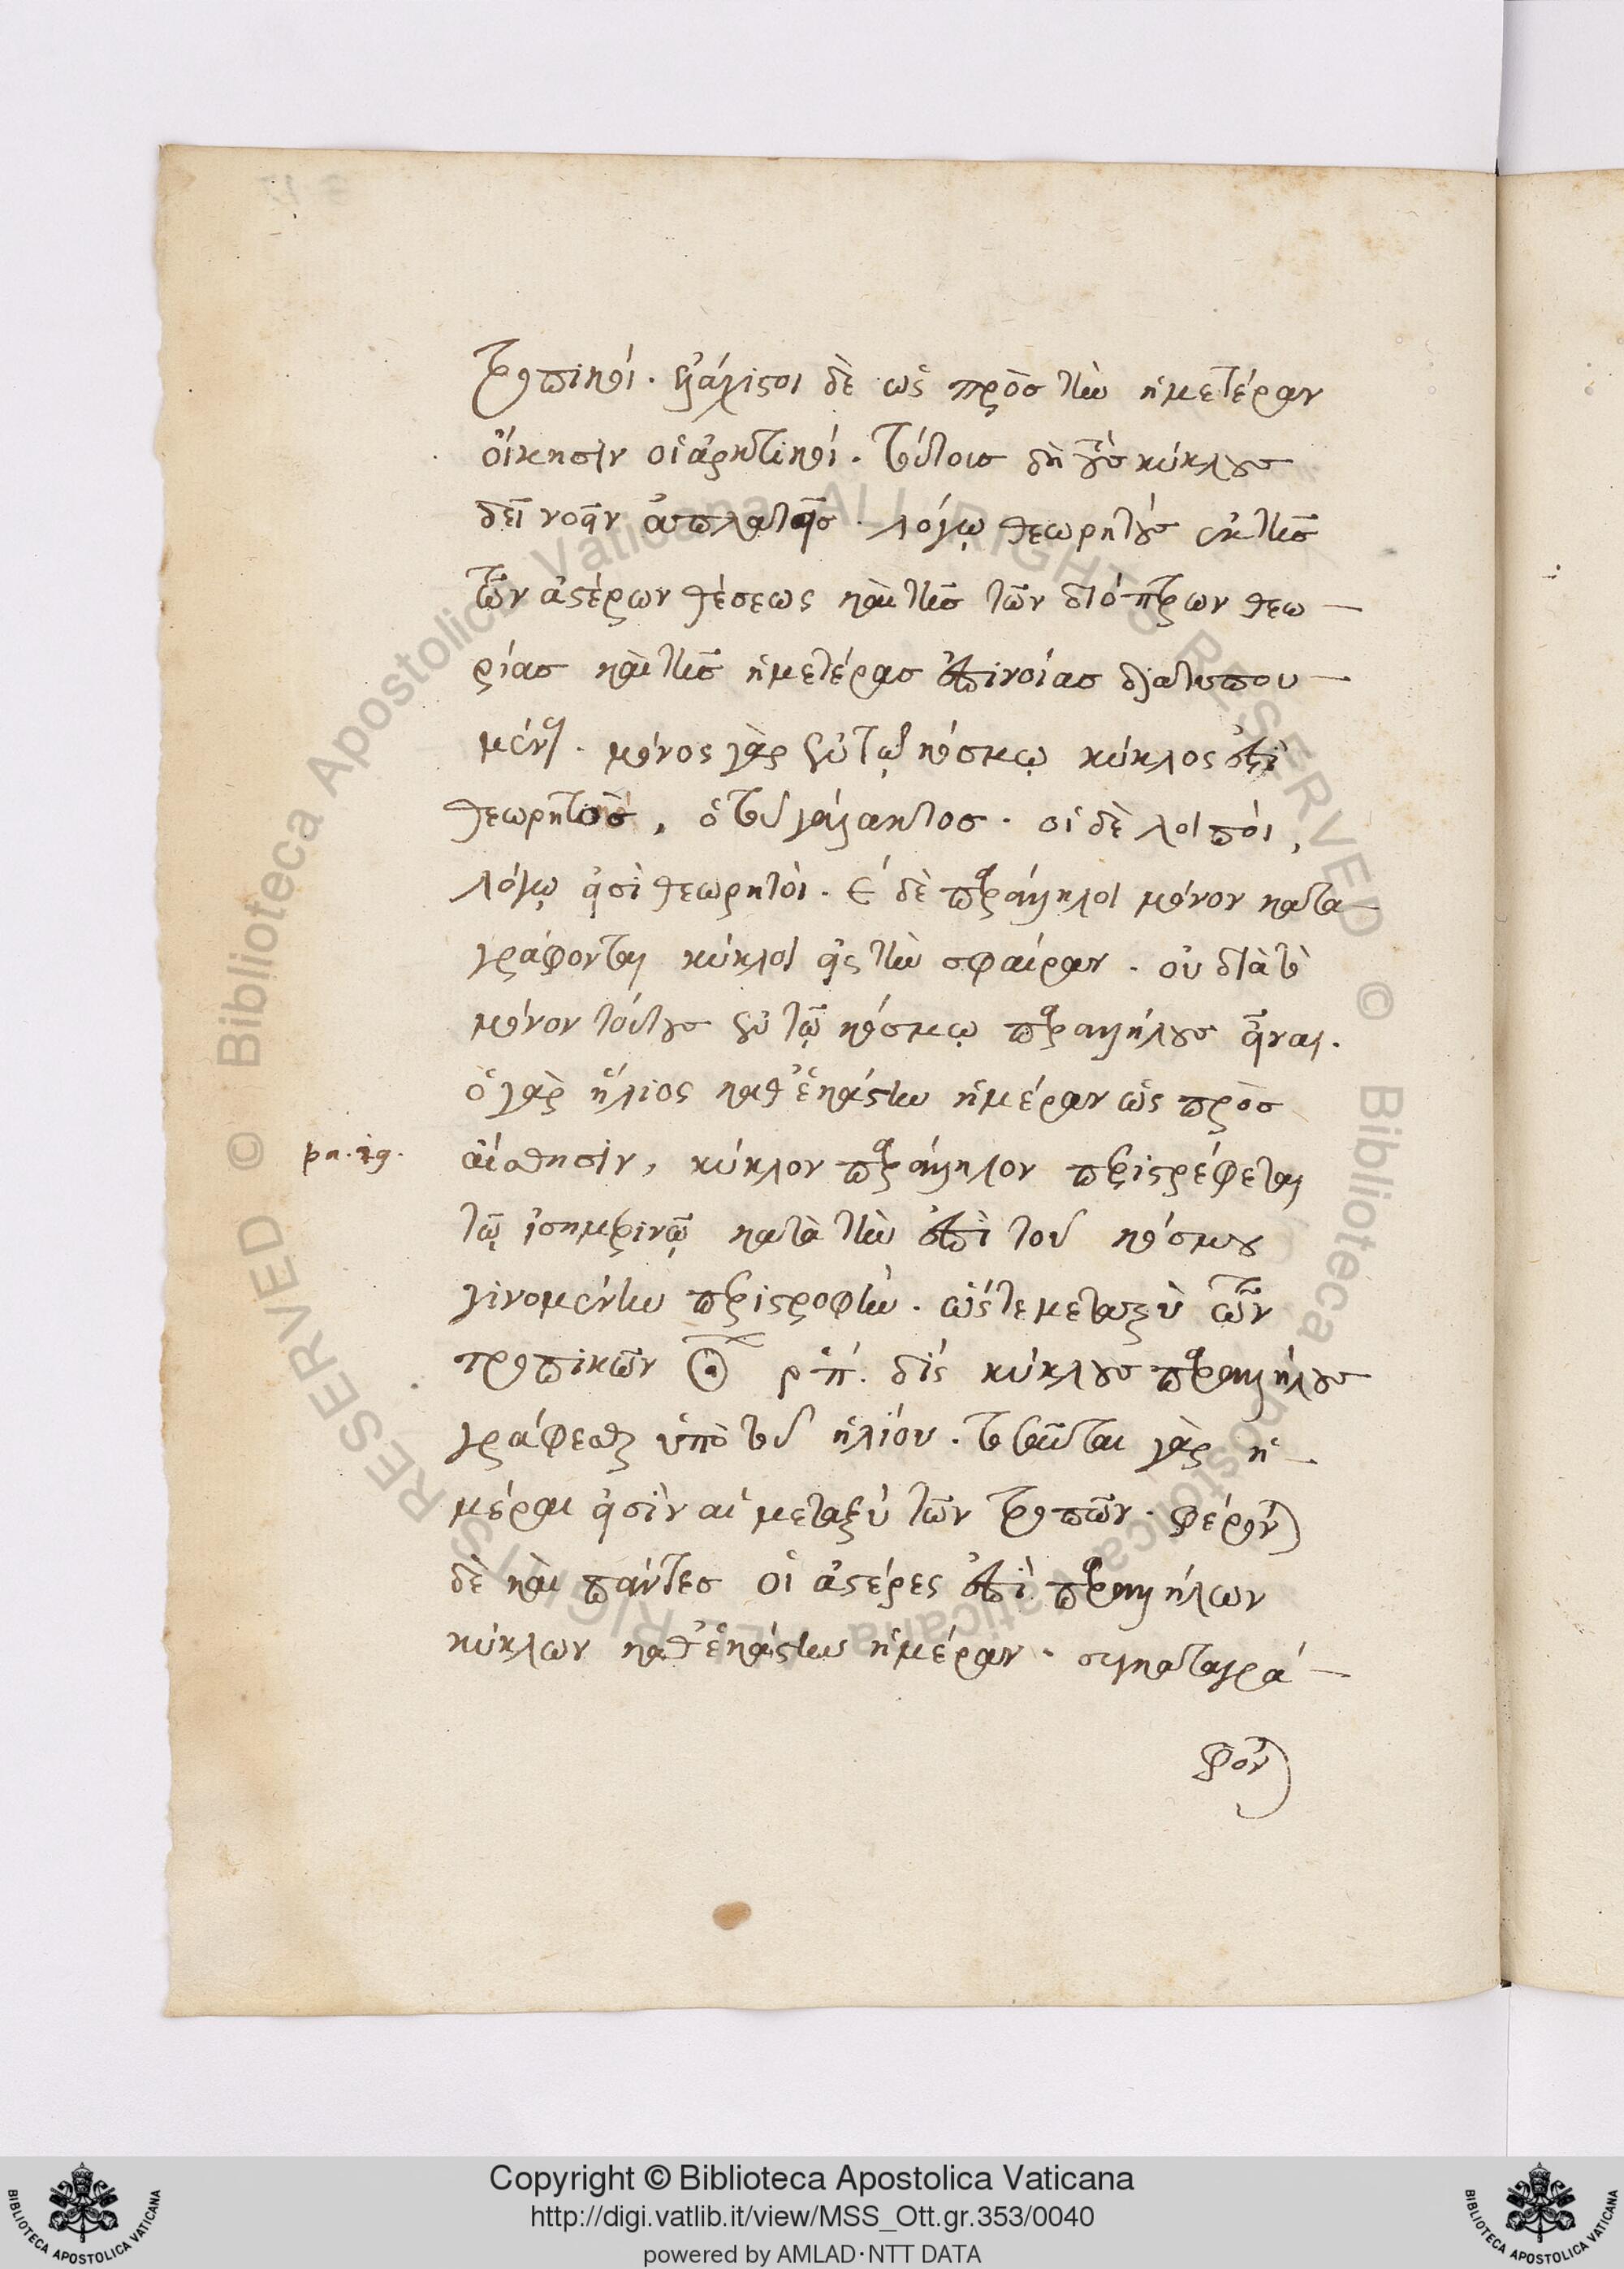 τροπικοί. ἐλάχιστοι δὲ ὡς πρὸς τὴν ἡμετέραν
οἴκησιν οἱ ἀρκτικοί. τούτους δὴ τοὺς κύκλους
δεῖ νοεῖν ἀπλατεῖς. λόγῳ θεωρητοὺς ἐκ τῆς
τῶν ἀστέρων θέσεως καὶ τῆς τῶν διόπτρων θεω-
ρίας καὶ τῆς ἡμετέρας ἐπινοίας διατυπου-
μένους. μόνος γὰρ ἐν τῷ κόσμῳ κύκλος ἐστὶ
θεωρητὸς, ὁ τοῦ γάλακτος. οἱ δὲ λοιποί,
λόγῳ εἰσὶ θεωρητοί. ε´ δὲ παράλληλοι μόνον κατα-
γράφονται κύκλοι εἰς τὴν σφαίραν. οὐ διὰ τὸ
μόνον τούτους ἐν τῷ κόσμῳ παραλλήλους εἶναι.
ὁ γὰρ ἥλιος καθ᾽ ἑκάστην ἡμέραν ὡς πρὸς
αἴσθησιν, κύκλον παράλληλον περιστρέφεται
τῷ ἰσημερινῷ κατὰ τὴν ἐπὶ τοῦ κόσμου
γινομένην περιστροφὴν. ὥστε μεταξὺ τῶν
τροπικῶν ☉ ρπ´. δὶς κύκλους παραλλήλους
γράφεσθαι ὑπὸ τοῦ ἡλίου. τοσαῦται γὰρ ἡ-
μέραι εἰσὶν αἱ μεταξὺ τῶν τροπῶν. φέρονται
δὲ καὶ πάντες οἱ ἀστέρες ἐπὶ παραλλήλων
κύκλων καθ᾽ ἑκάστην ἡμέραν. συγκαταγρά-
φονται
Copyright © Biblioteca Apostolica Vaticana
http://digi.vatlib.it/view/MSS_Ott.gr.353/0040
powered by AMLAD·NTT DATA